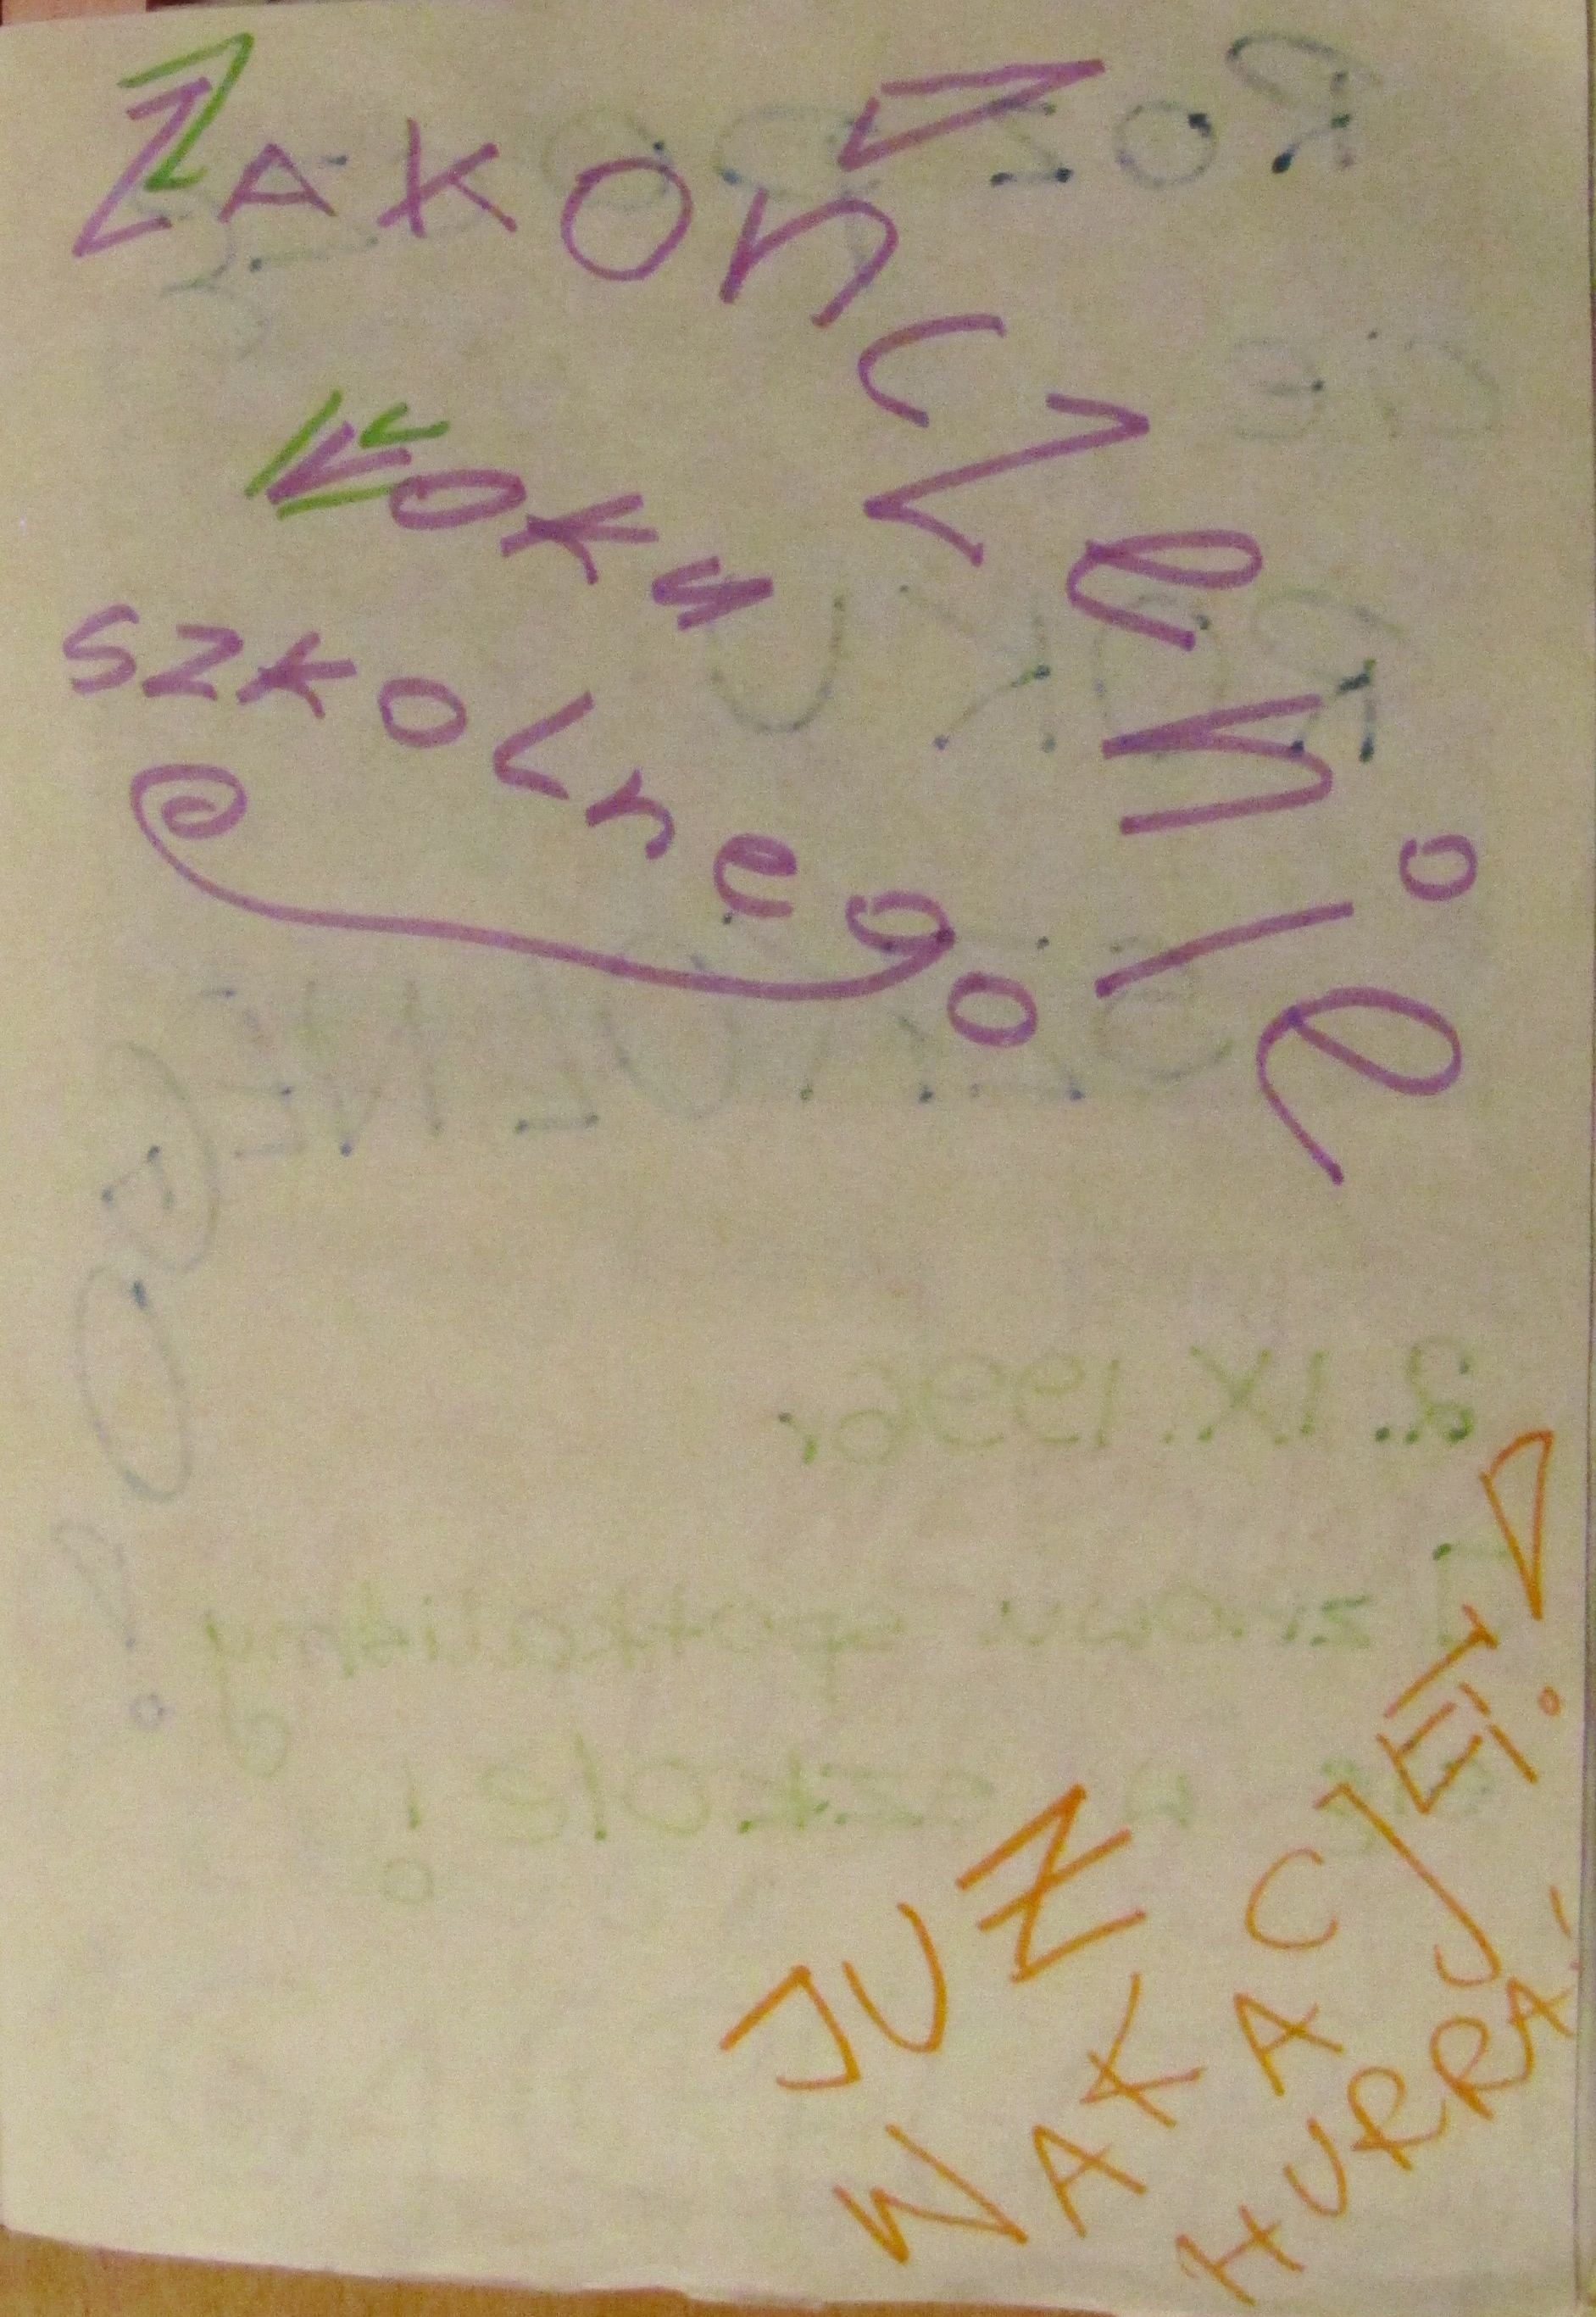 ZAKOńCZenie
roku
szkolnego
JUŻ
WAKACJE!
HURRA!